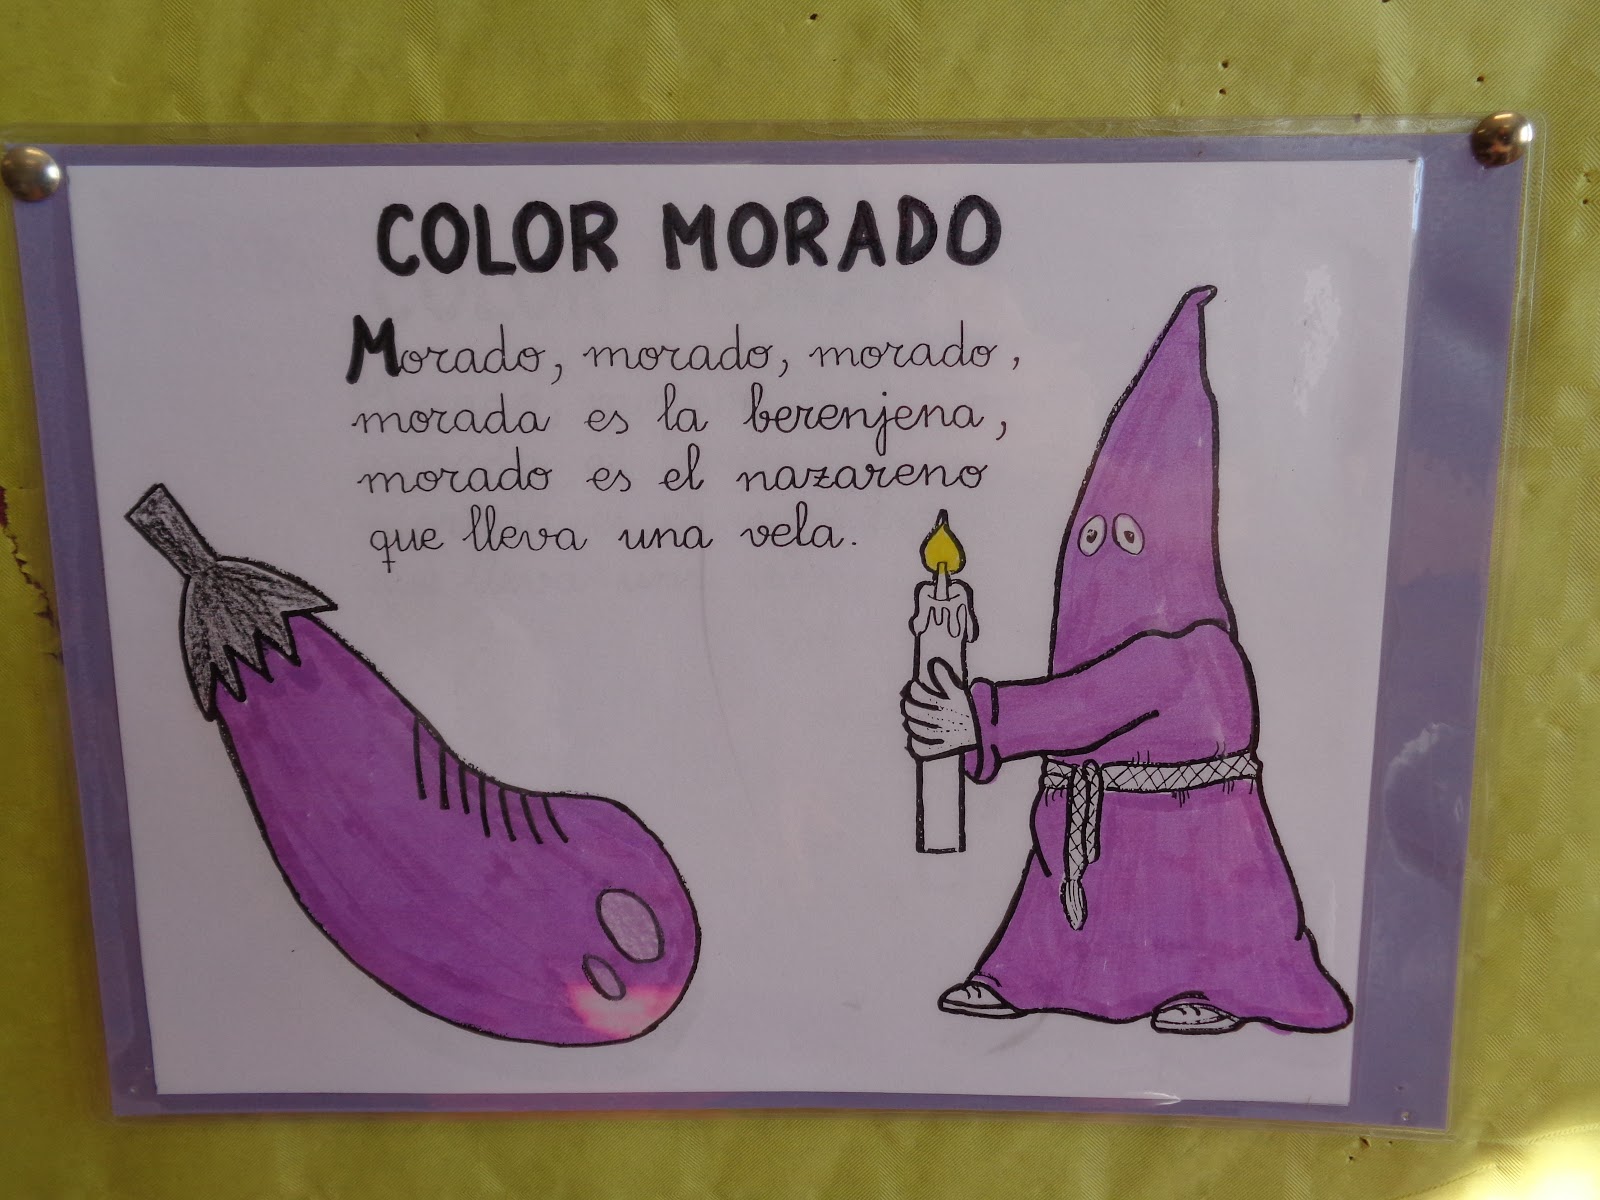 COLOR MORADO
Morado, morado, morado,
morada es la berenjena,
morado es el nazareno
que lleva una vela.